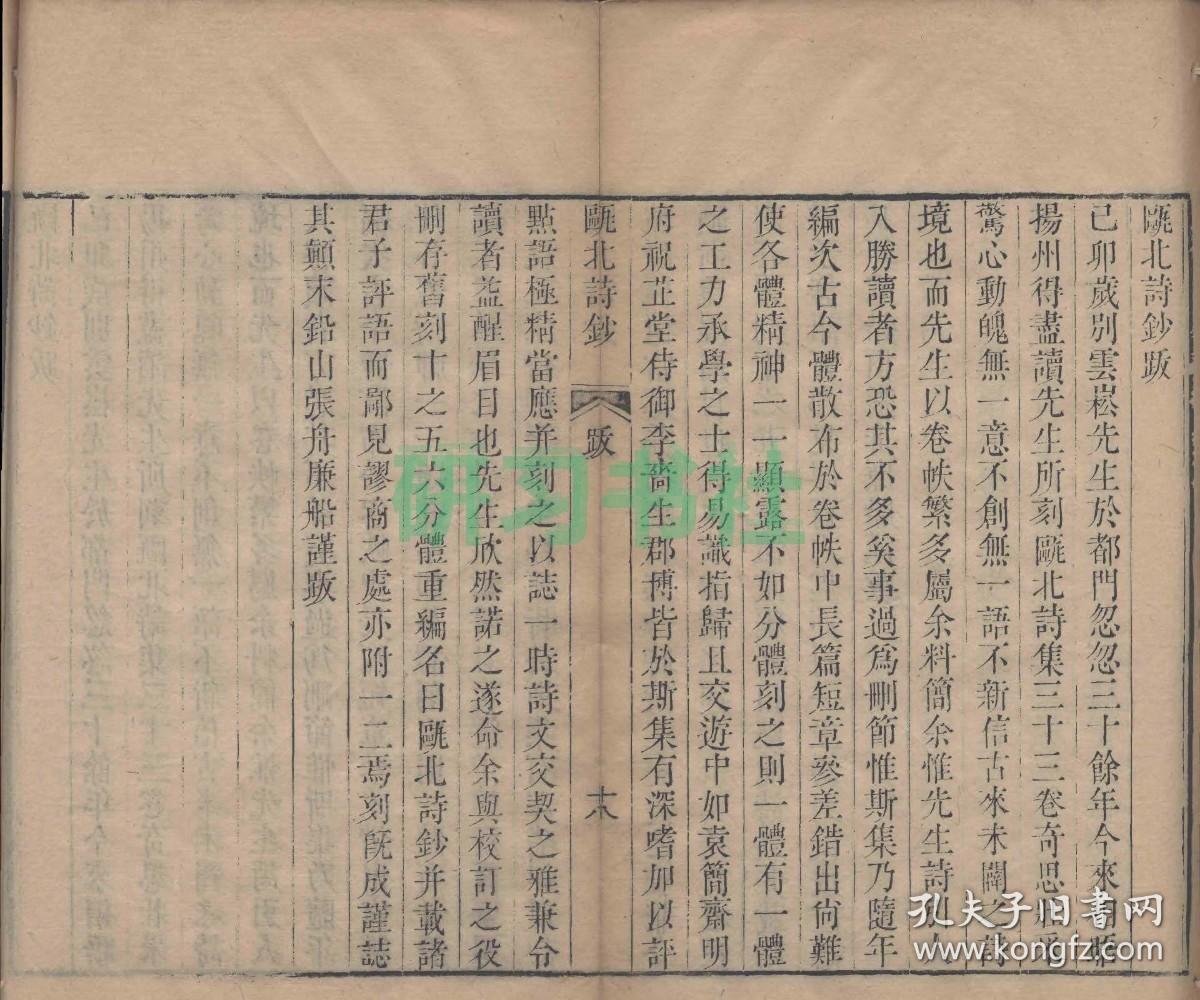 甌北詩鈔跋
己卯歲別雲崧先生於都門忽忽三十餘年今來
揚州得盡讀先生所刻甌北詩集三十三卷奇思
驚心動魄無一意不創無一語不新信古來未闢之
境也而先生以卷帙繁多屬余料簡余惟先生詩
入勝讀者方恐其不多奚事過爲刪節惟斯集乃隨年
編次古今體散布於卷帙中長篇短章參差錯出尙難
使各體精神一一顯露不如分體刻之則一體有一體
之工力承學之士得易識指歸且交遊中如袁簡齋明
府祝芷堂侍御李嗇生郡博皆於斯集有深嗜加以評
甌北詩鈔 跋 十八
點語極精當應并刻之以誌一時詩文交契之雅兼令
讀者益醒眉目也先生欣然諾之遂命余與校訂之役
刪存舊刻十之五六分體重編名曰甌北詩鈔并載諸
君子評語而鄙見謬商之處亦附一二焉刻旣成謹誌
其顚末鉛山張舟廉船謹跋
研习书社
孔夫子旧书网
www.kongfz.com